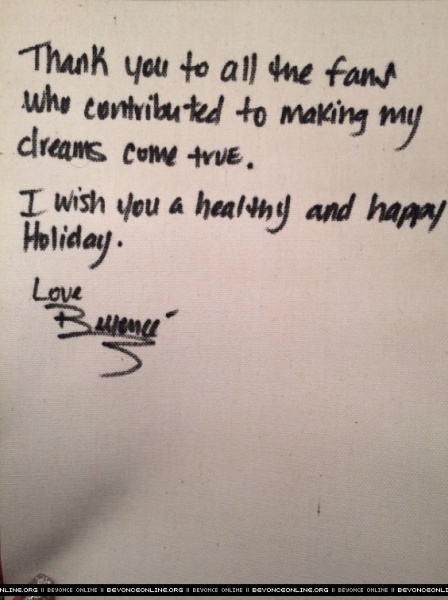 Thank you to all the fans
who contributed to making my
dreams come true.
I wish you a healthy and happy
Holiday.
Love
Beyoncé
NLINE.ORG || BEYONCE ONLINE || BEYONCEONLINE.ORG || BEYONCE ONLINE || BEYONCEONLINE.ORG || BEYONCE ONLINE || BEYONCEONLI